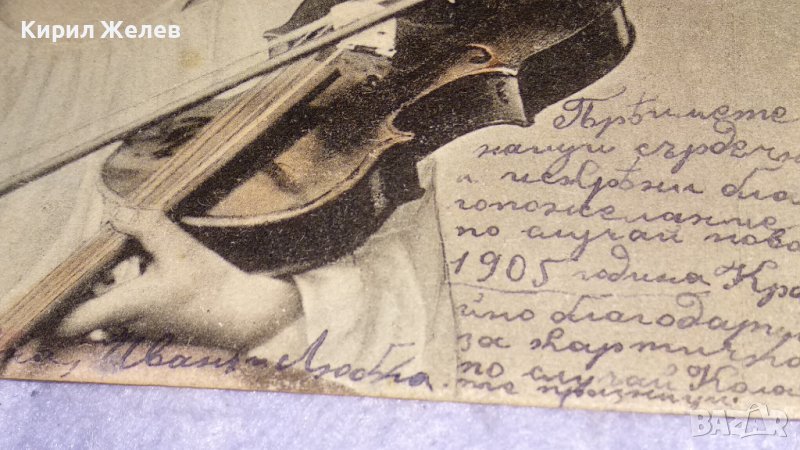 Кирил Желев
Пърѣимете
нашуи сърдечн
и искрѣни бла
гопожелание
по случаи ново
1905 година Кра
йно благодарн
за картичка
по случай Кола
празници.
Иванъ и Любка.
BAZAR